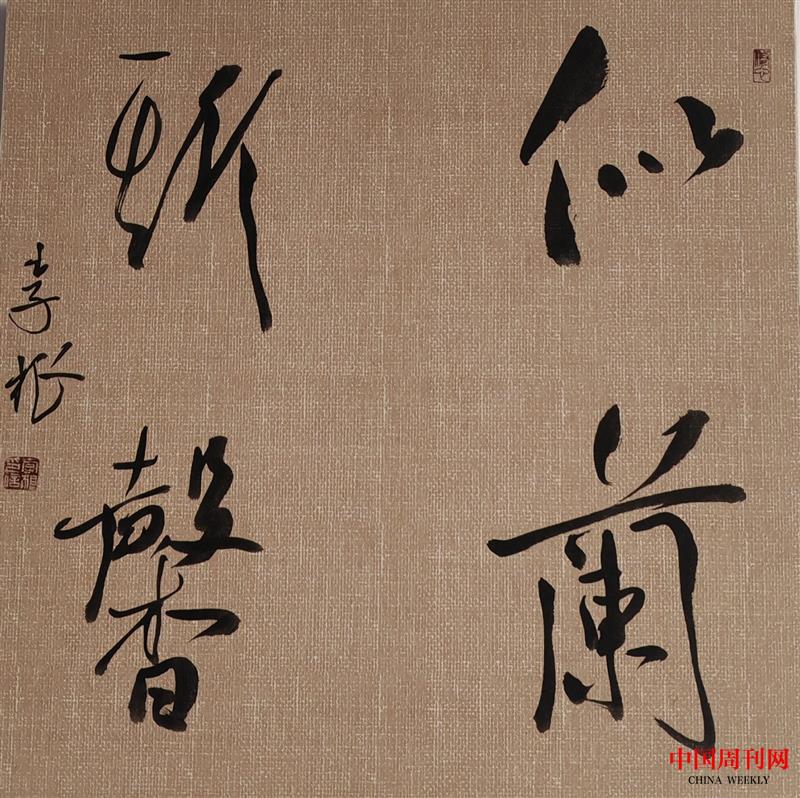 似蘭
斯馨
中国周刊网
CHINA WEEKLY